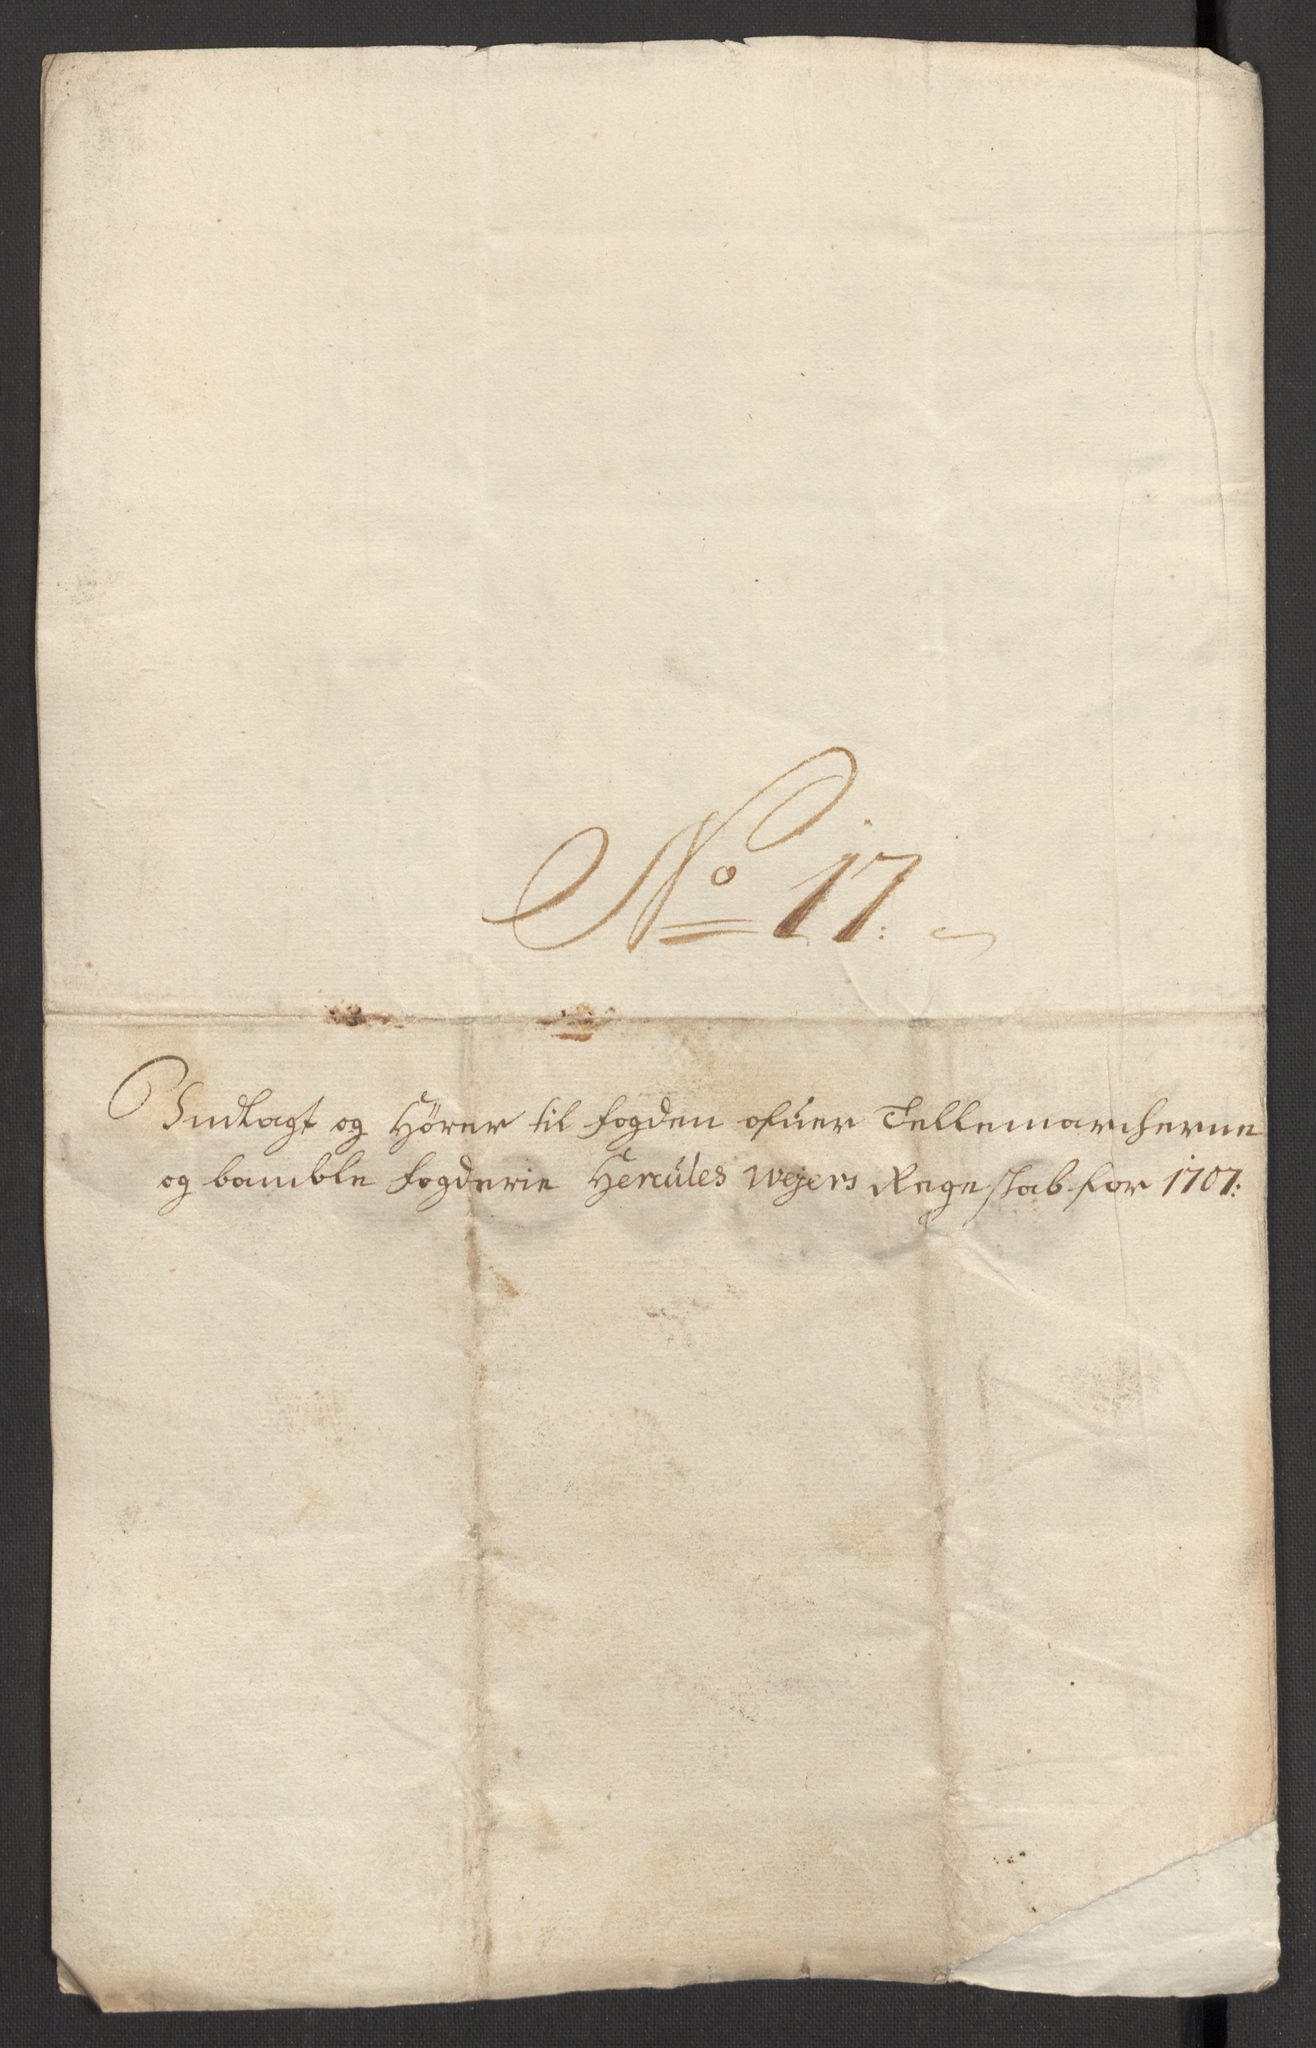 No 17:
Indlagt og Hører til fogden ofuer Tellemarcherne
og bamble fogderie Hercules Wejers Regenskab for 1707: